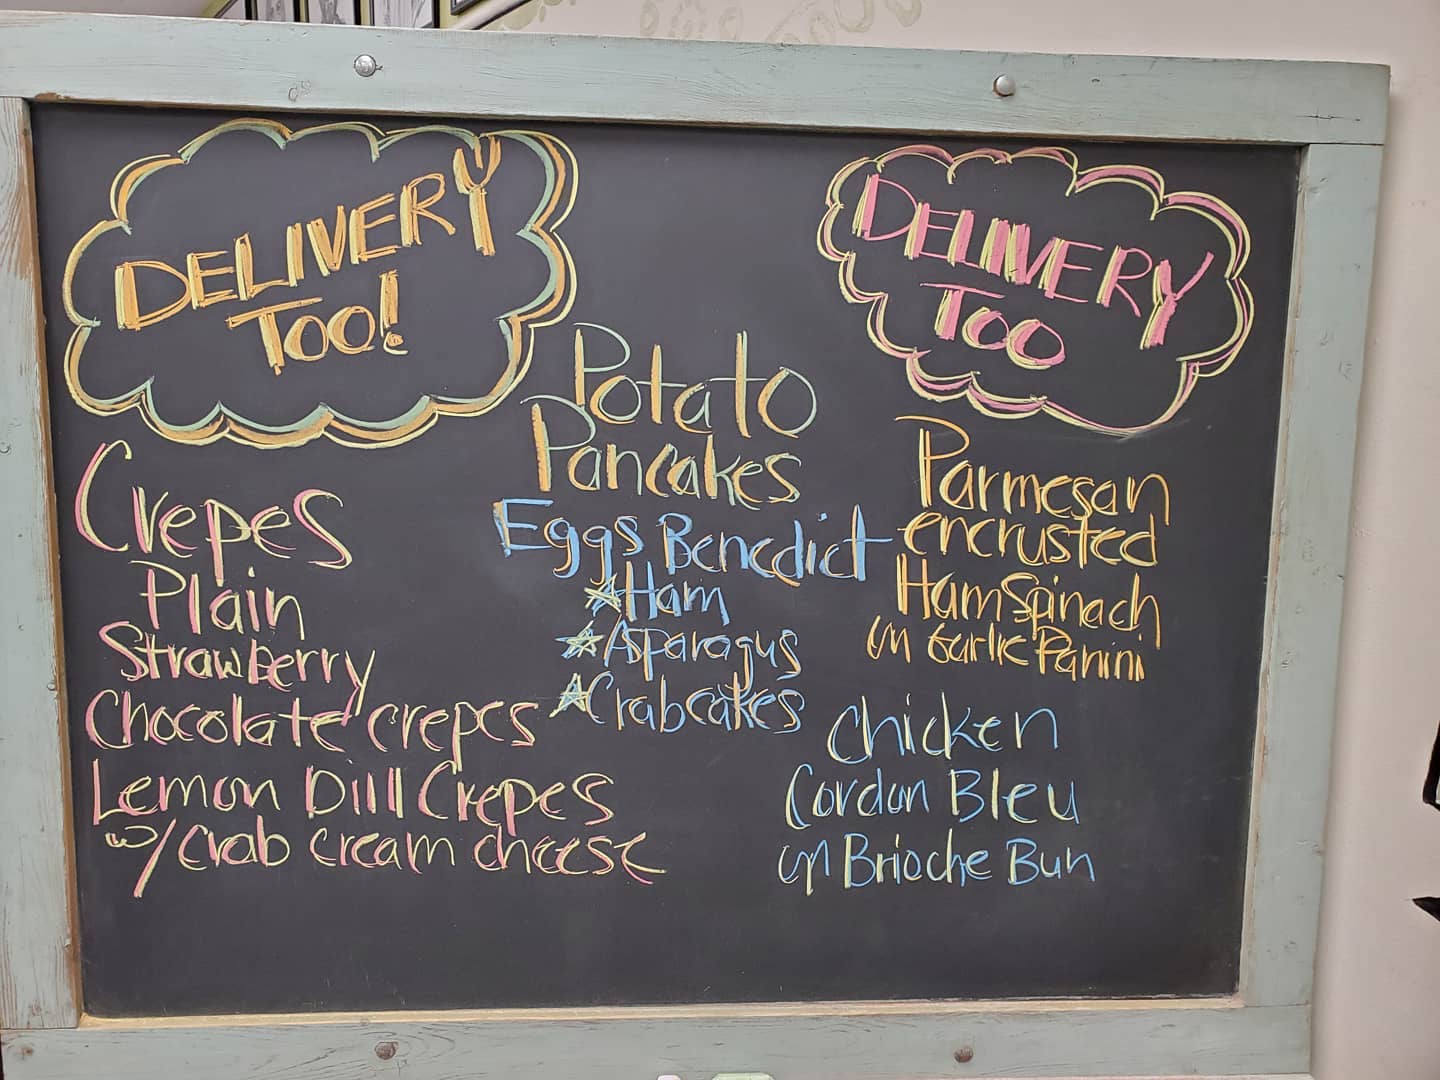 DELIVERY
TOO!
Crepes
Plain
Strawberry
Chocolate crepes
Lemon Dill Crepes
w/ crab cream cheese
Potato
Pancakes
Eggs Benedict
Ham
Asparagus
Crabcakes
DELIVERY
TOO
Parmesan
encrusted
Ham Spinach
on Garlic Panini
Chicken
Cordon Bleu
on Brioche Bun